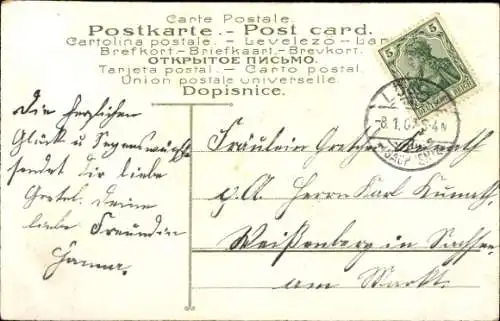 Carte Postale.
Postkarte.- Post card.
Cartolina postale. - Levelező-
Brefkort.-Briefkaart.-Brevkort.
ОТКРЫТОЕ ПИСЬМО.
Tarjeta postal. - Carto postal.
Union postale universelle.
Dopisnice.
5 5
8.1.07
Die herzlichen
Glück u Segenswünsche
sendet dir liebe
Gretel. deine
liebe Freundin
Hanna.
Fräulein Gretchen
p. A. Herrn Karl
Weißenberg in Sachsen
am Markt.